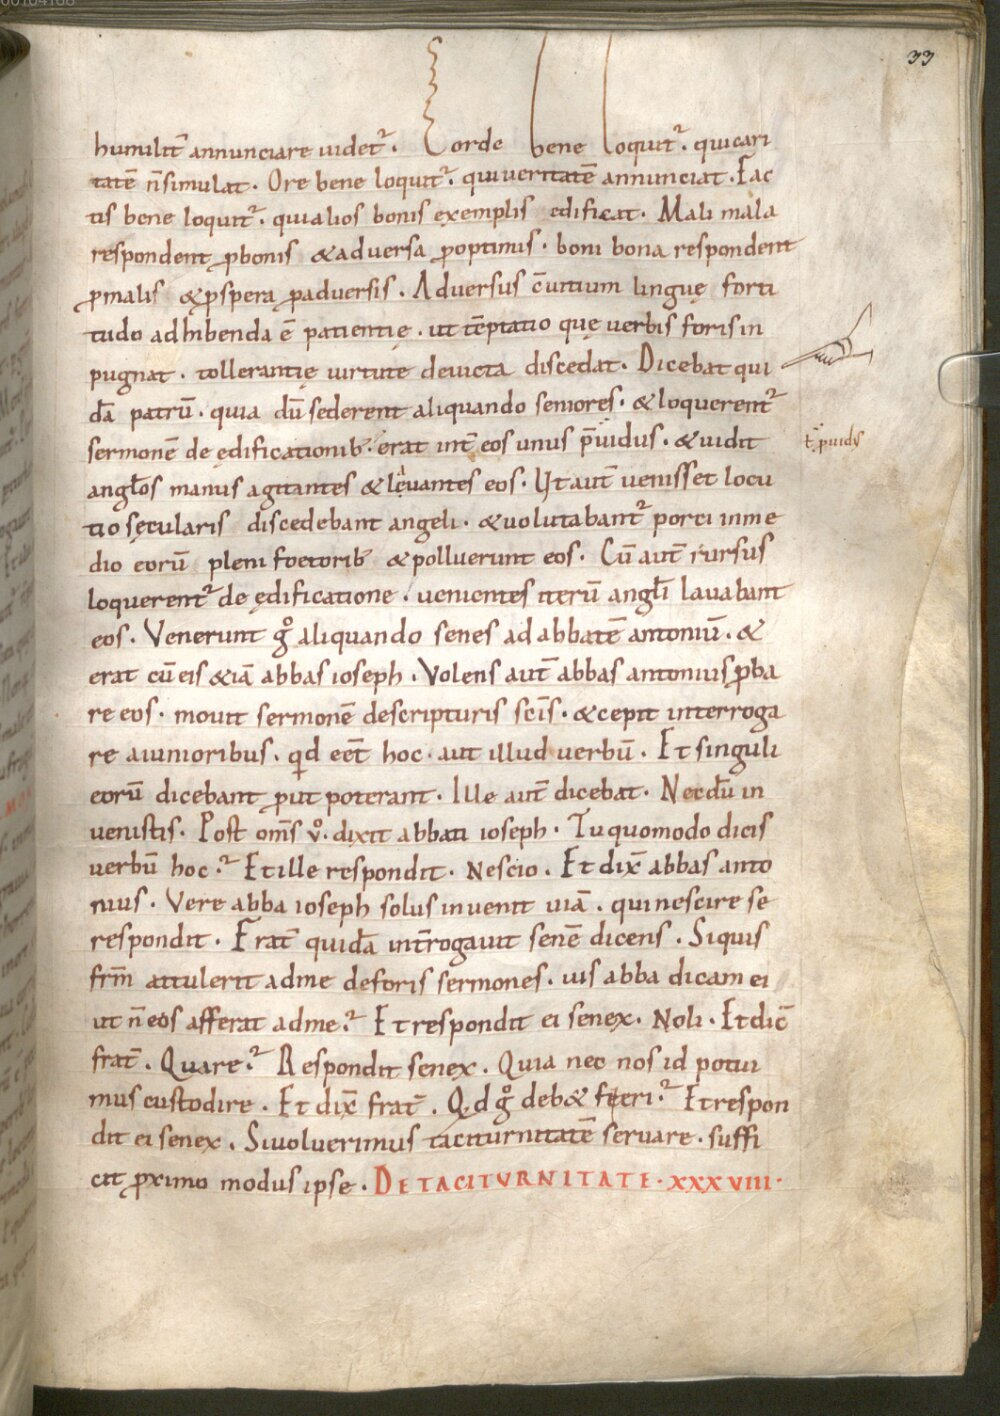 33
humilit̄ annunciare uidet᷑. Corde bene loquit᷑. qui cari
tatē n̄ simulat. Ore bene loquit᷑. qui ueritatē annunciat. Fac
tis bene loquit᷑. qui alios bonis exemplis edificat. Mali mala
respondent ꝓ bonis & aduersa ꝓ optimis. boni bona respondent
ꝓ malis & ꝓspera ꝓ aduersis. Aduersus c̄uitium linguę forti
tudo adhibenda ē patientię. ut tēptatio quę uerbis foris in
pugnat. tollerantię uirtute deuicta discedat. Dicebat qui
dā patrū. quia dū sederent aliquando seniores. & loquerent᷑
sermonē de ędificationib; erat int̄ eos unus p̄uidus. & uidit
ł ꝓuidus
angl̄os manus agitantes & lęuantes eos. Ut aut̄ uenisset locu
tio sęcularis discedebant angeli. & uolutabant᷑ porci in me
dio eorū pleni foetorib; & polluerunt eos. Cū aut̄ rursus
loquerent᷑ de ędificatione. uenientes iterū angl̄i lauabant
eos. Venerunt gͦ aliquando senes ad abbatē antoniū. &
erat cū eis & iā abbas ioseph. Volens aut̄ abbas antonius ꝓba
re eos. mouit sermonē de scripturis sc̄is. & cepit interroga
re a iunioribus. qd eēt hoc. aut illud uerbū. Et singuli
eorū dicebant ꝓut poterant. Ille aut̄ dicebat. Necdū in
uenistis. Post om̄s uͦ. dixit abbati ioseph. Tu quomodo dicis
uerbū hoc.? Et ille respondit. Nescio. Et dix̄ abbas anto
nius. Vere abba ioseph solus inuenit uiā. qui nescire se
respondit. Frat̄ quidā int̄rogauit senē dicens. Si quis
fr̄m attulerit ad me de foris sermones. uis abba dicam ei
ut n̄ eos afferat ad me.? Et respondit ei senex. Noli. Et dic̄
frat̄. Quare.? Respondit senex. Quia nec nos id potui
mus custodire. Et dix̄ frat̄. Qd gͦ deb& fieri.? Et respon
dit ei senex. Si uoluerimus taciturnitatē seruare. suffi
cit ꝓximo modus ipse. DE TACITURNITATE. XXXVIII.